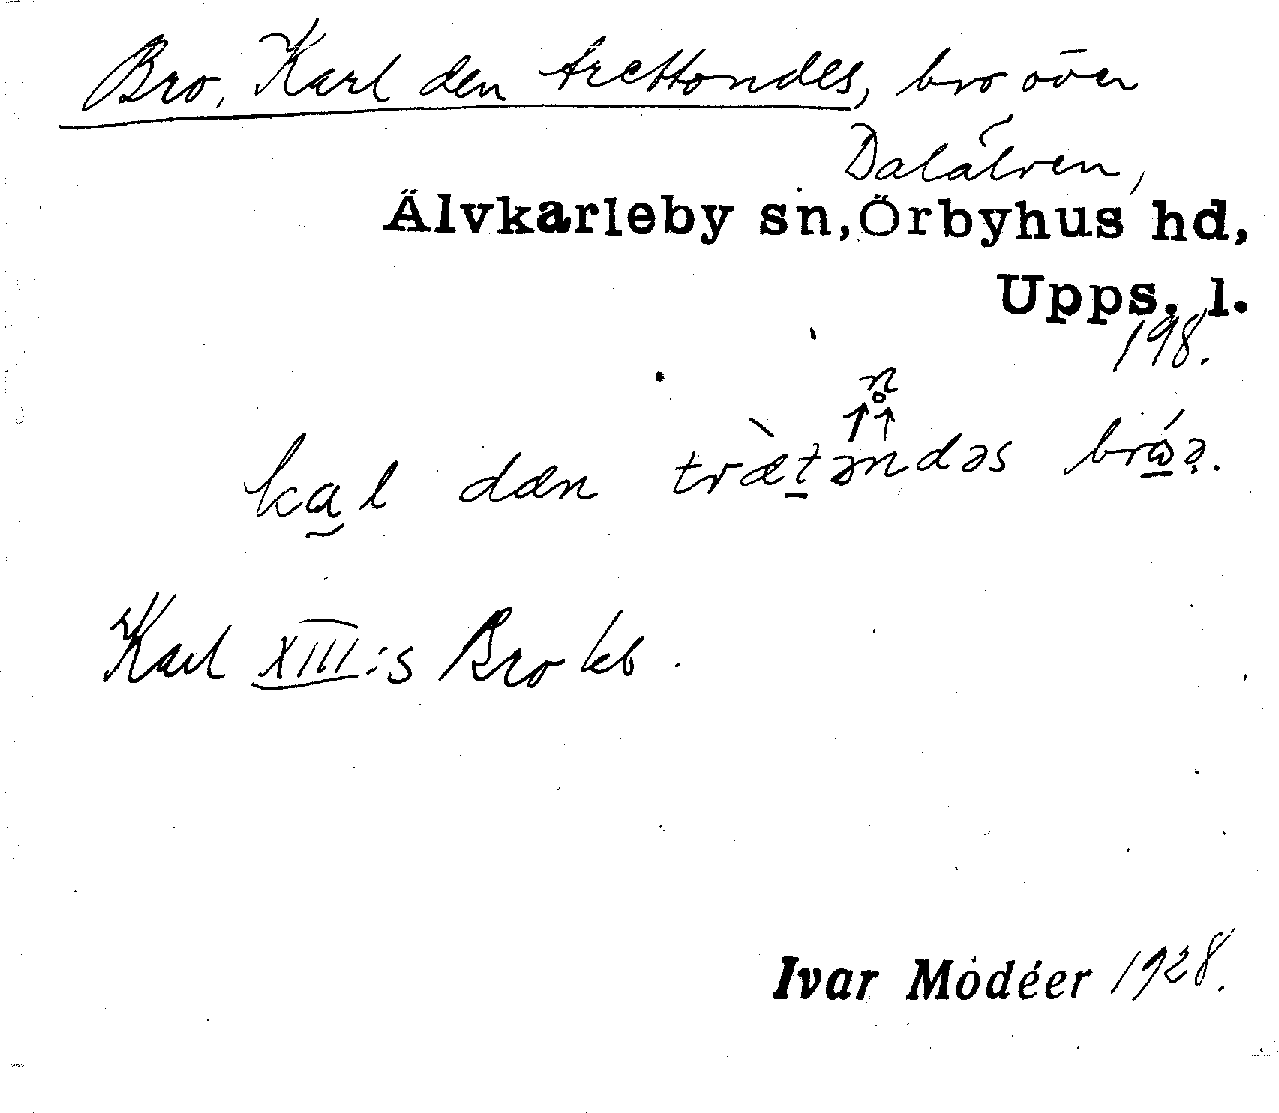 Bro, Karl den trettondes, bro över
Dalälven,
Älvkarleby sn, Örbyhus hd,
Upps. l.
198.
kal dæn trætəndəs
Karl XIII:s Bro kb.
Ivar Modéer 1928.